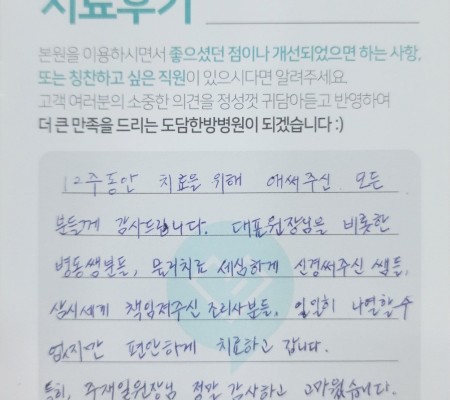 치료후기
본원을 이용하시면서 좋으셨던 점이나 개선되었으면 하는 사항,
또는 칭찬하고 싶은 직원이 있으시다면 알려주세요.
고객 여러분의 소중한 의견을 정성껏 귀담아듣고 반영하여
더 큰 만족을 드리는 도담한방병원이 되겠습니다 :)
12주동안 치료를 위해 애써주신 모든
분들께 감사드립니다. 대표원장님을 비롯한
병동쌤분들, 물리치료 세심하게 신경써주신 쌤들,
삼시세끼 책임져주신 조리사분들, 일일히 나열할수
없지만 편안하게 치료하고 갑니다.
특히, 주재일원장님 정말 감사하고 고마웠습니다.